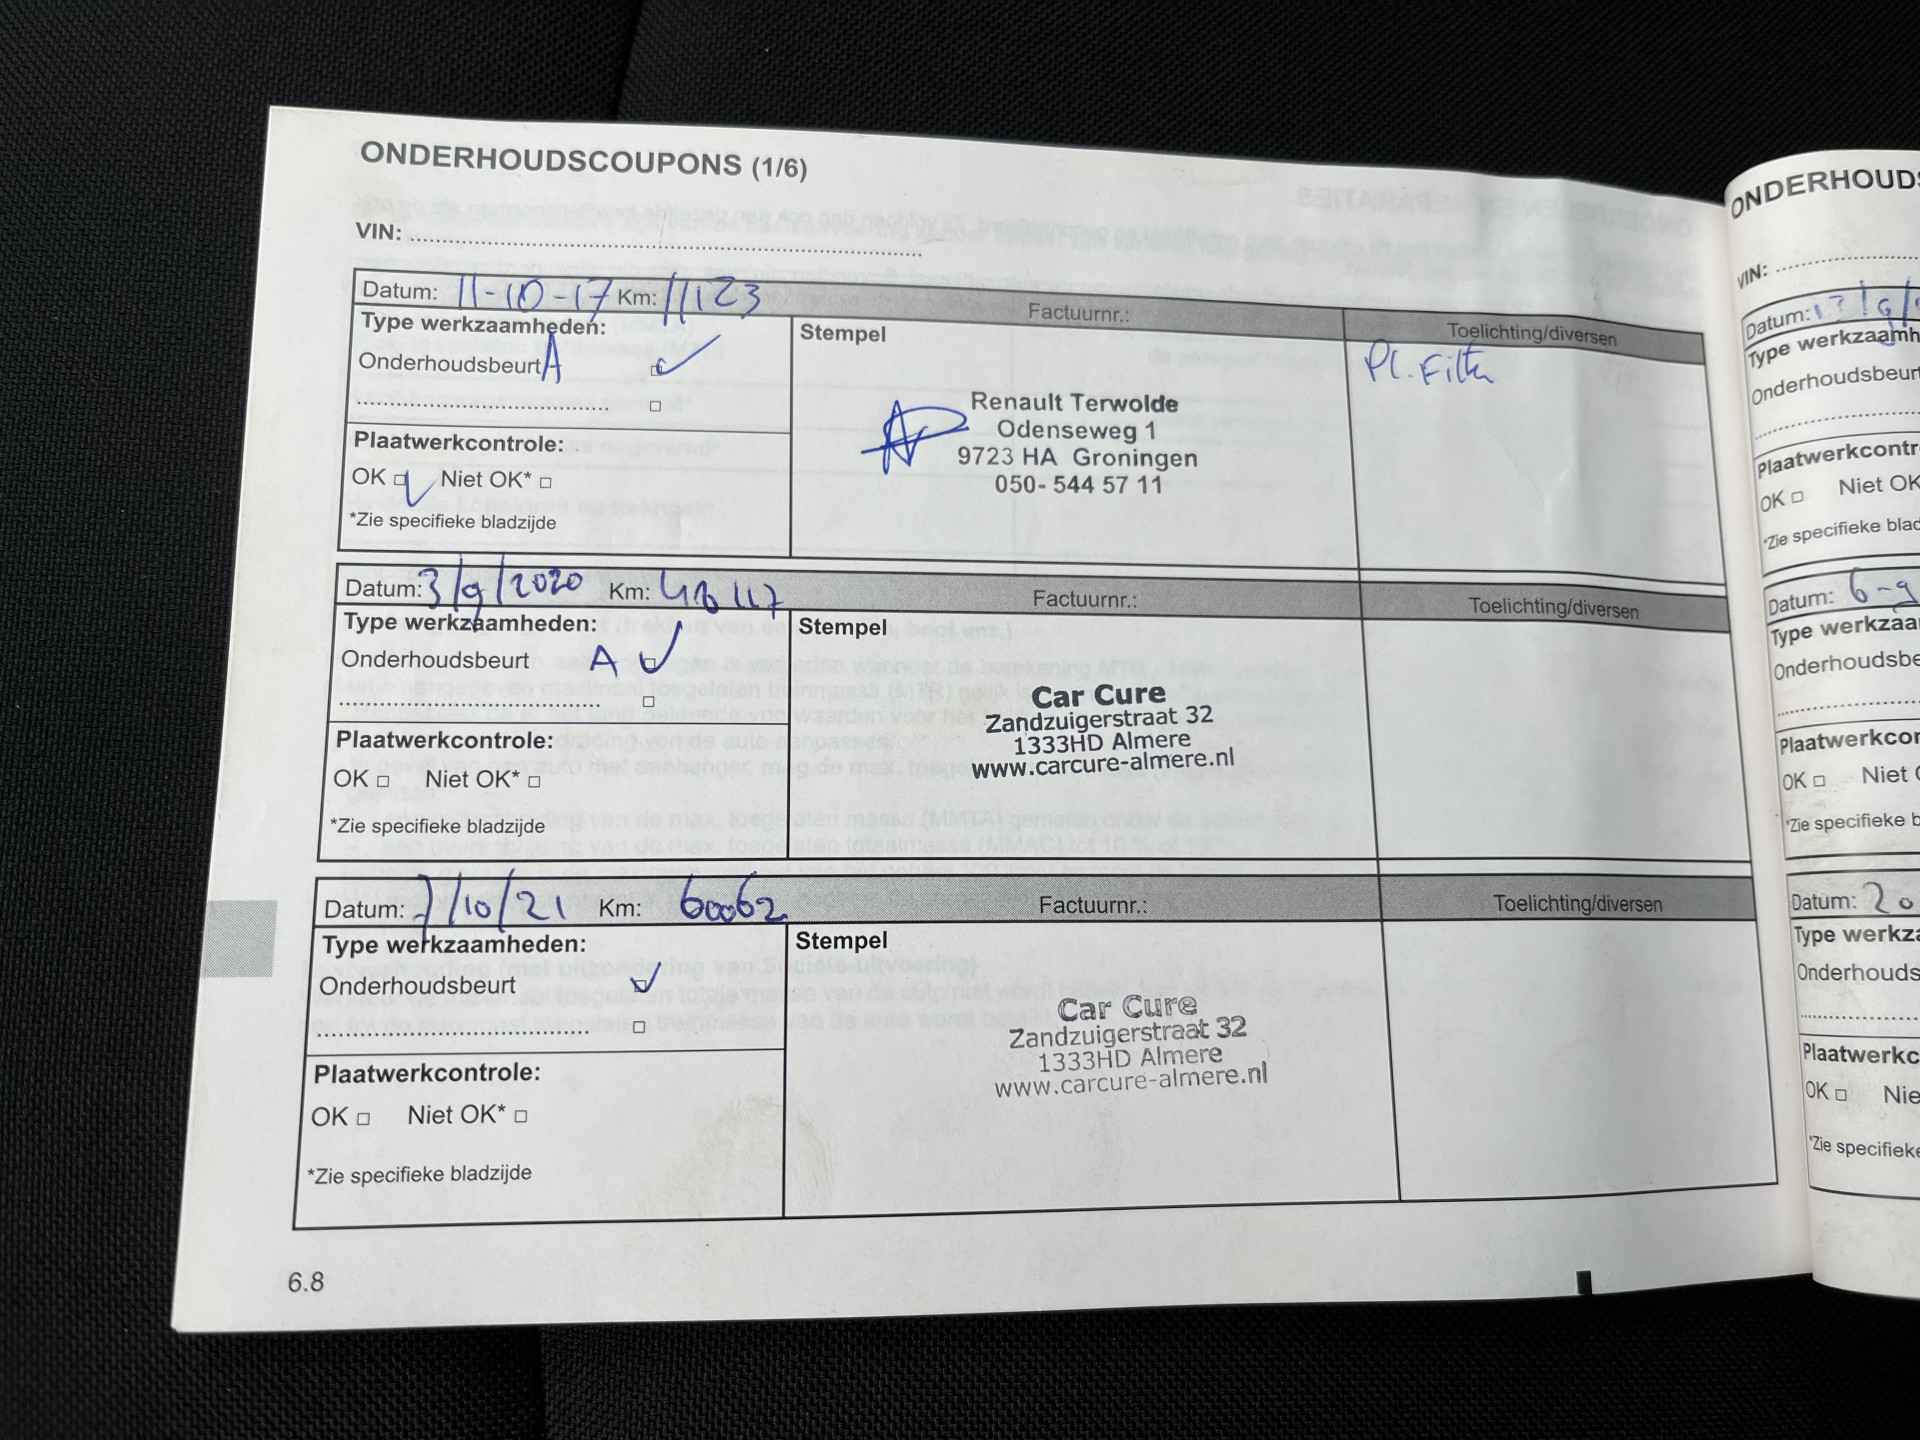 ONDERHOUDSCOUPONS (1/6)
VIN:
Datum: 11-10-17 Km: 11123 Factuurnr.: Toelichting/diversen
Type werkzaamheden:
Onderhoudsbeurt A
Stempel
Pl. Filter
Renault Terwolde
Odenseweg 1
9723 HA Groningen
050- 544 57 11
Plaatwerkcontrole:
OK Niet OK*
*Zie specifieke bladzijde
Datum: 3/9/2020 Km: Factuurnr.: Toelichting/diversen
Type werkzaamheden:
Onderhoudsbeurt A
Stempel
Car Cure
Zandzuigerstraat 32
1333HD Almere
www.carcure-almere.nl
Plaatwerkcontrole:
OK Niet OK*
*Zie specifieke bladzijde
Datum: 7/10/21 Km: 60062 Factuurnr.: Toelichting/diversen
Type werkzaamheden:
Onderhoudsbeurt
Stempel
Car Cure
Zandzuigerstraat 32
1333HD Almere
www.carcure-almere.nl
Plaatwerkcontrole:
OK Niet OK*
*Zie specifieke bladzijde
6.8
ONDERHOUDS
VIN:
Datum:
Type werkzaamh
Onderhoudsbeurt
Plaatwerkcontr
OK Niet OK
*Zie specifieke blad
Datum: 6-9
Type werkzaa
Onderhoudsbe
Plaatwerkcon
OK Niet
*Zie specifieke b
Datum: 20
Type werkza
Onderhouds
Plaatwerkc
OK Nie
*Zie specifieke